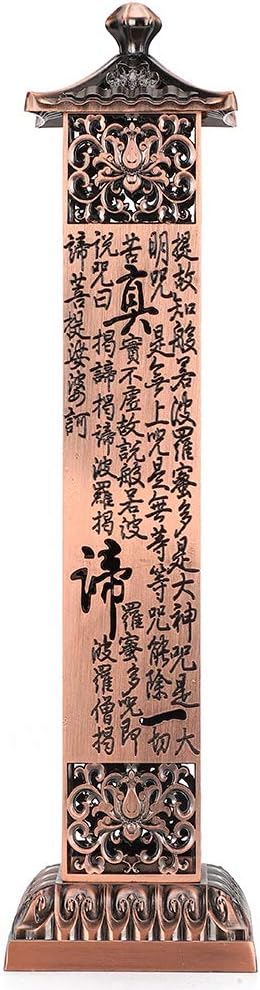 提故知般若波羅蜜多是大神咒是大
明咒是無上咒是無等等咒能除一切
苦真實不虛故說般若波羅蜜多咒即
說咒曰揭諦揭諦波羅揭諦波羅僧揭
諦菩提娑婆訶